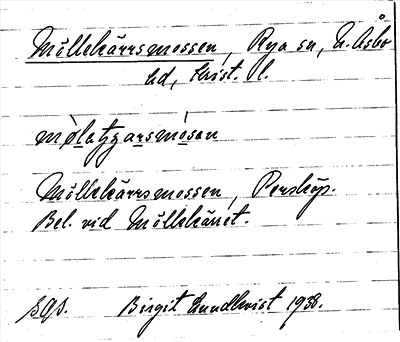 Möllekärrsmossen, Rya sn, N. Åsbo
hd, Krist. l.
Möllekärrsmossen, Perstorp.
Bel. vid Möllekärret.
Birgit Lundkvist 1938.